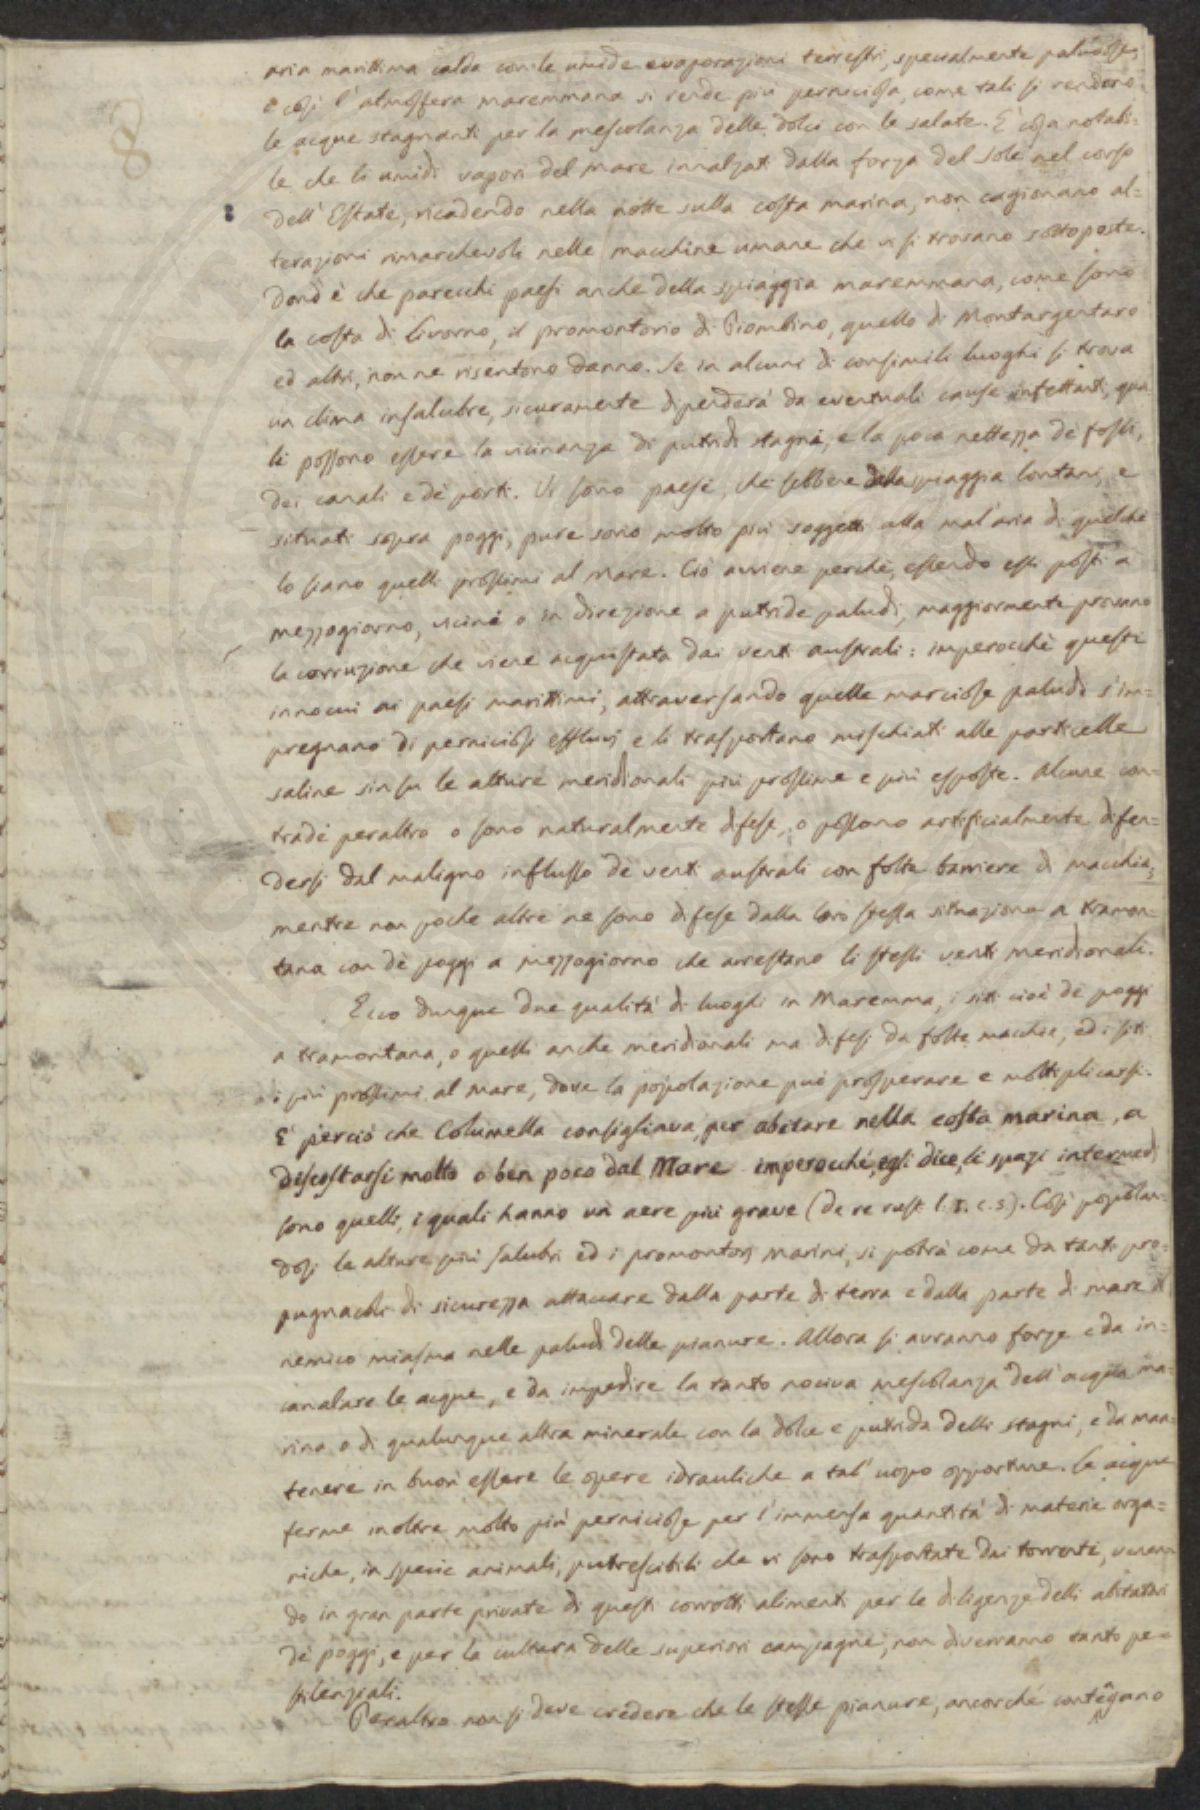 aria marittima calda con le umide evaporazioni terrestri, specialmente paludose,
e così l'atmosfera maremmana si rende più perniciosa, come tali si rendono
le acque stagnanti per la mescolanza delle dolci con le salate. E' cosa notabi=
le, che li umidi vapori del mare innalzati dalla forza del sole nel corso
dell'Estate, ricadendo nella notte sulla costa marina, non cagionano al=
terazioni rimarchevoli nelle macchine umane che vi si trovano sottoposte.
Dond'è che parecchi paesi anche della spiaggia maremmana, come sono
la costa di Livorno, il promontorio di Piombino, quello di Montargentaro
ed altri, non ne risentono danno. Se in alcuni di consimili luoghi si trova
un clima insalubre, sicuramente dipenderà da eventuali cause infettanti, qua
li possono essere la vicinanza di putridi stagni, e la poca nettezza de' fossi,
dei canali e de' porti. Vi sono paesi, che sebbene dalla spiaggia lontani, e
situati sopra poggi, pure sono molto più soggetti alla mal'aria di quelche
lo siano quelli prossimi al mare. Ciò avviene perchè, essendo essi posti a
mezzogiorno, vicini o in direzione a putride paludi, maggiormente provano
la corruzione che viene acquistata dai venti australi: imperocchè questi
innocui ai paesi marittimi, attraversando quelle marciose paludi s'im=
pregnano di perniciosi effluvj e li trasportano mischiati alle particelle
saline sin su le alture meridionali più prossime e più esposte. Alcune con=
trade peraltro o sono naturalmente difese, o possono artificialmente difen=
dersi dal maligno influsso de' venti australi con folte barriere di macchia,
mentre non poche altre ne sono difese dalla loro stessa situazione a tramon=
tana con de' poggi a mezzogiorno che arrestano li stessi venti meridionali.
Ecco dunque due qualità di luoghi in Maremma, i siti cioè de' poggi
a tramontana, o quelli anche meridionali ma difesi da folte macchie, ed i siti
i più prossimi al mare, dove la popolazione può prosperare e moltiplicarsi.
E' perciò che Columella consigliava, per abitare nella costa marina, a
discostarsi molto o ben poco dal Mare imperocchè, egli dice, li spazi intermedj
sono quelli, i quali hanno un aere più grave (de re rust. l. 1. c. 5). Così popolan=
dosi le alture più salubri ed i promontorj marini, si potrà come da tanti pro=
pugnacoli di sicurezza attaccare dalla parte di terra e dalla parte di mare il
nemico miasma nelle paludi delle pianure. Allora si avranno forze e da in=
canalare le acque, e da impedire la tanto nociva mescolanza dell'acqua ma=
rina o di qualunque altra minerale con la dolce e putrida delli stagni, e da man=
tenere in buon'essere le opere idrauliche a tal'uopo opportune. Le acque
ferme inoltre molto più perniciose per l'immensa quantità di materie orga=
niche, in specie animali, putrescibili che vi sono trasportate dai torrenti, venen=
do in gran parte private di questi corrotti alimenti per le diligenze delli abitatori
de' poggi, e per la cultura delle superiori campagne, non diverranno tanto pe=
stilenziali.
Peraltro non si deve credere che le stesse pianure, ancorchè contengano